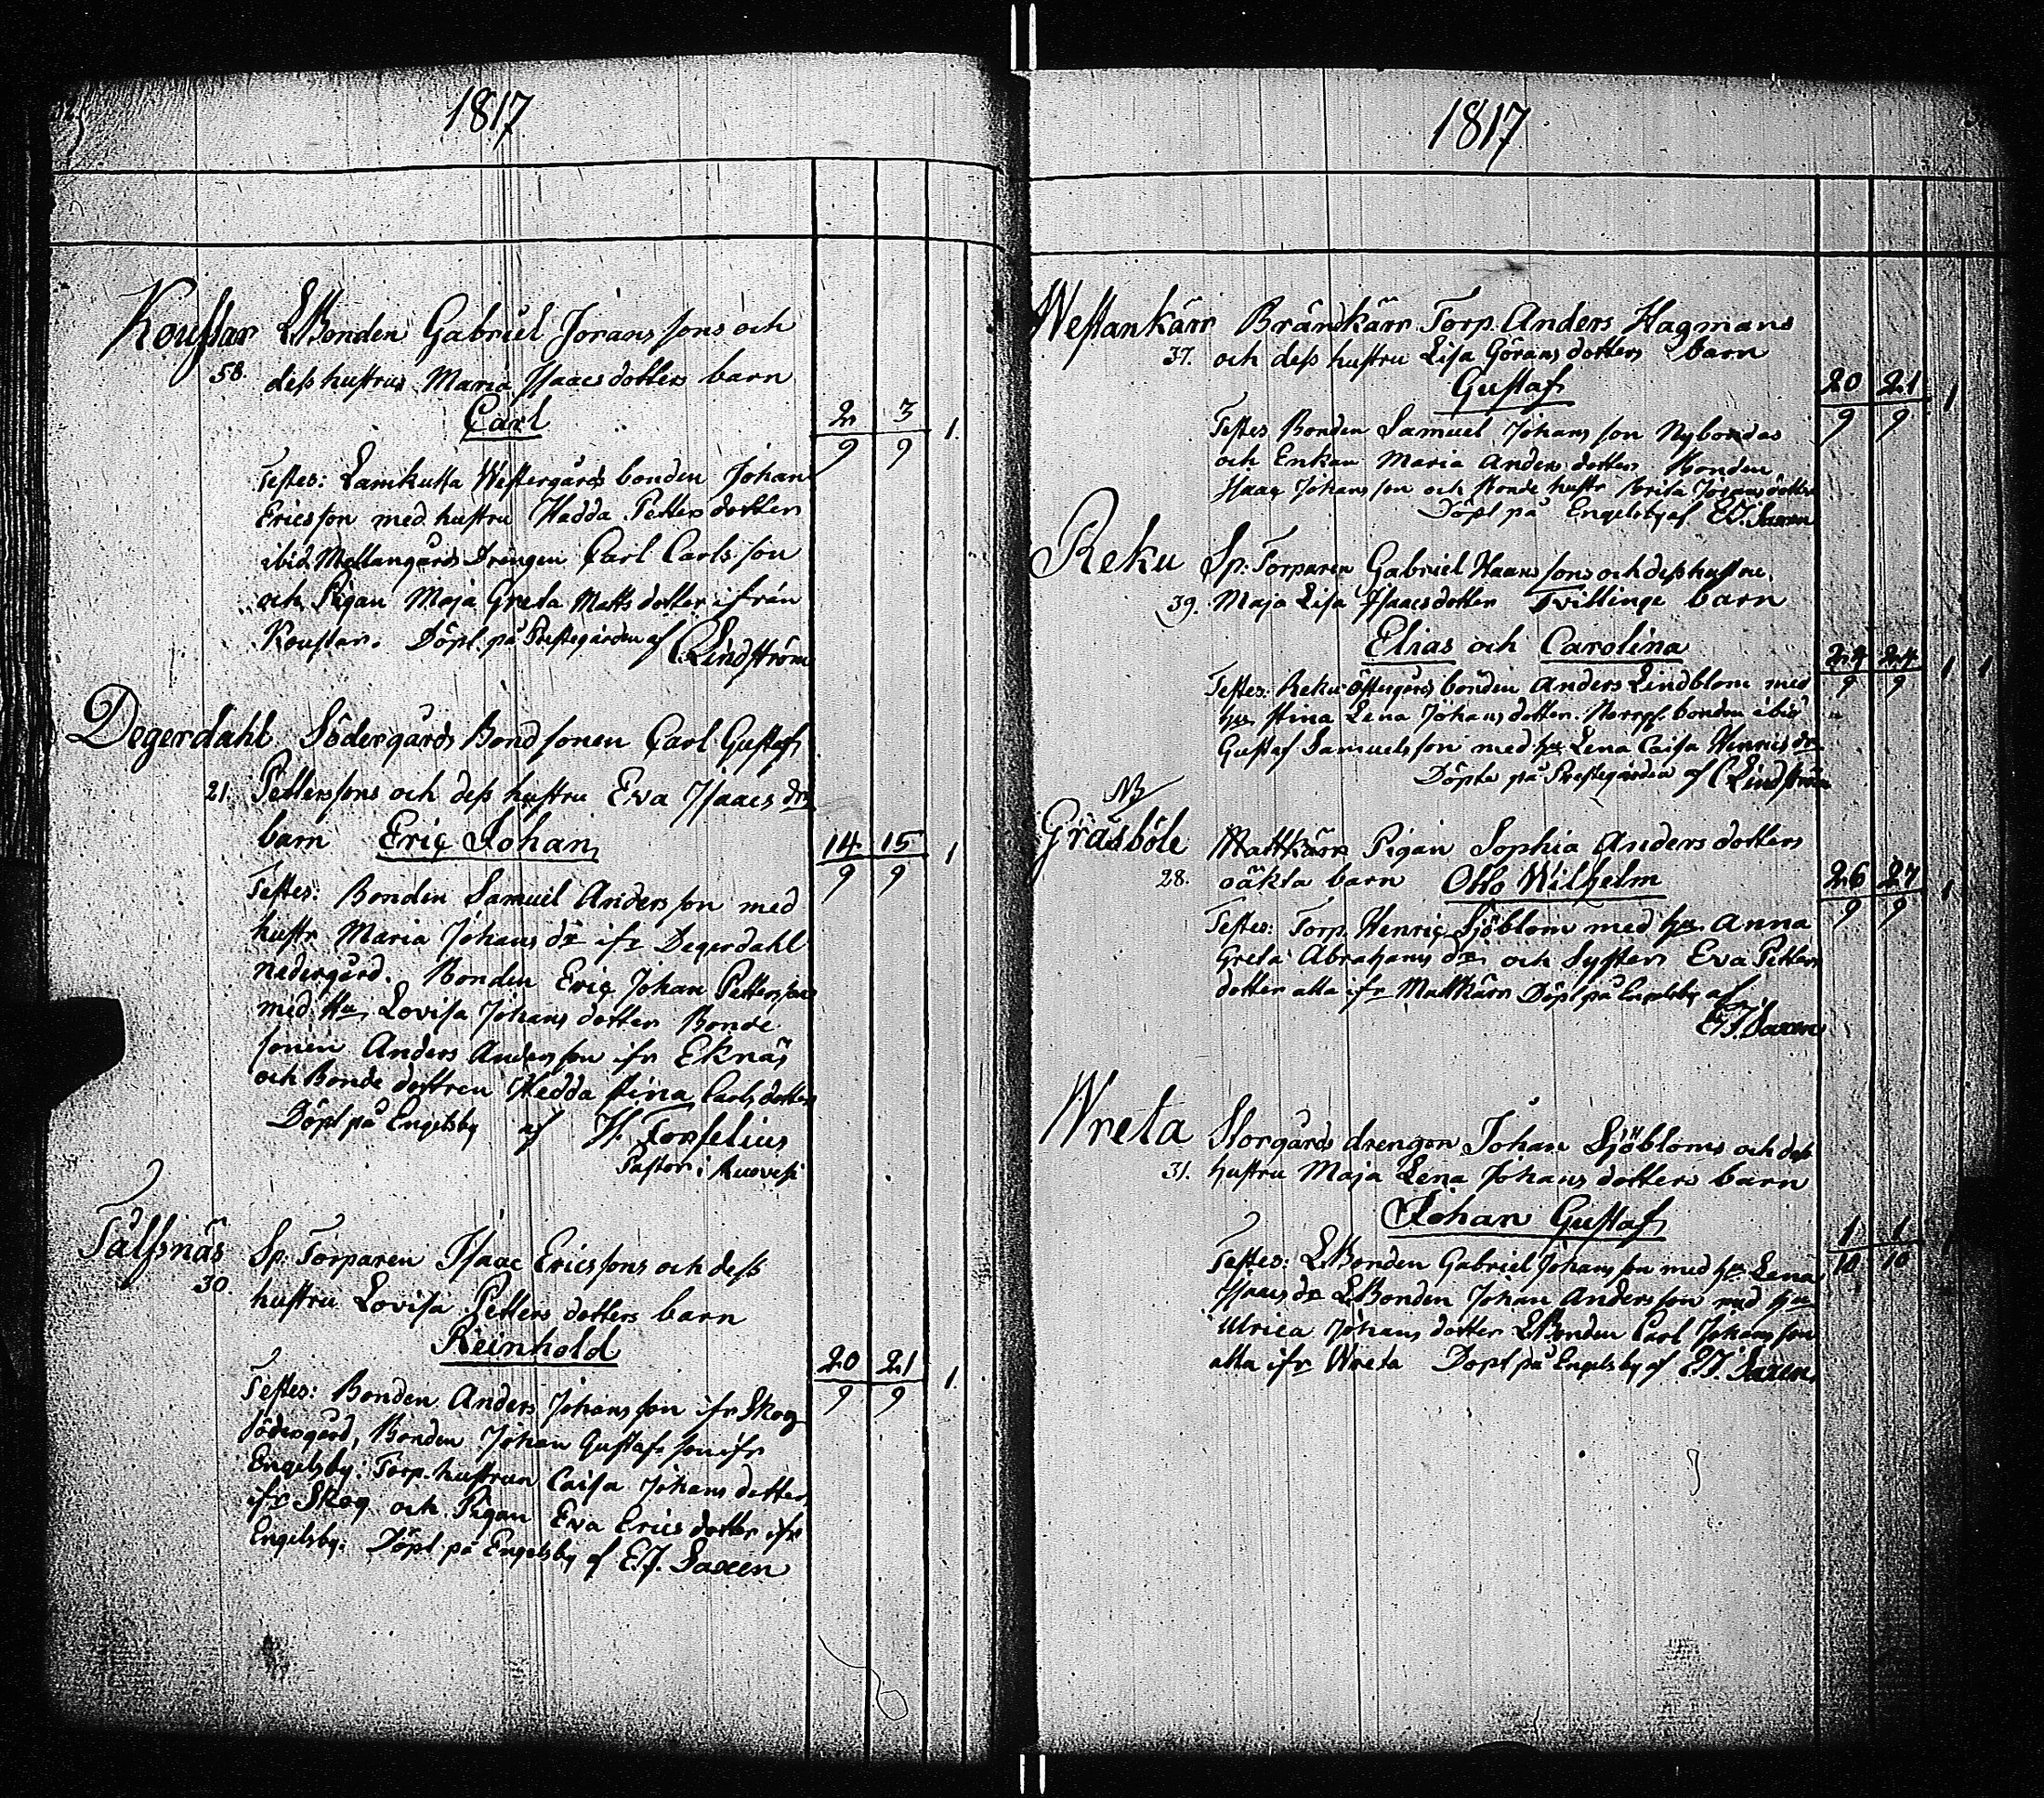 1817
Koussar LBonden Gabriel Jörans sons och
58. dess hustrus Maria Isaacs dotters barn
Carl
2 3 1.
9 9
Testes: Lamkulla Westergårds bonden Johan
Ericsson med hustru Hedda Petters dotter
ibid. Mellangårds Drengen Carl Carlsson
och Pigan Maja Greta Matts dotter ifrån
Koussar. Döpt på Prestegården af C. Lindström
Degerdahl Södergårds Bondsonen Carl Gustaf
21. Petterssons och dess hustru Eva Isaacs dr
barn Eric Johan
14 15 1
9 9
Testes: Bonden Samuel Andersson med
hustr. Maria Johans dr ifr Degerdahl
nedergård. Bonden Eric Johan Pettersson
med Hu Lovisa Johans dotter Bonde
sonen Anders Andersson ifr Eknäs
och Bonde dottren Hedda Stina Carls dotter
Döpt på Engelsby af H. Forselius
Pastor i Ruovesi
Tålsnäs Sp. Torparen Isaac Ericssons och dess
30. hustru Lovisa Petters dotters barn
Reinhold
20 21 1.
9 9
Testes: Bonden Anders Johansson ifr Skog
södergård, Bonden Johan Gustafsson ifr
Engelsby. Torp. hustrun Caisa Johans dotter
ifr Skog och Pigan Eva Erics dotter ifr
Engelsby. Döpt på Engelsby af E.J. Saxen
1817
Westankärr Brändkärr Torp. Anders Hagmans
37. och dess hustru Lisa Görans dotters barn
Gustaf
20 21 1
9 9
Testes Bonden Samuel Johansson Nybondas
och Enkan Maria Anders dotter Bonden
Isaac Johansson och Bonde hustr Brita Jörans dotter
Döpt på Engelsby af E.J. Saxen
Reku Sp. Torparen Gabriel Haanssons och dess hustru
39. Maja Lisa Isaacs dotter Tvillinge barn
Elias och Carolina
24 24 1 1
9 9
Testes: Reku Östergårds bonden Anders Lindblom med
hu Stina Lena Johans dotter. Norrg. bonden ibid
Gustaf Samuelsson med hu Lena Caisa Henrics dr
Döpte på Prestegården af C. Lindström
NB
Gräsböle Mattkärr Pigan Sophia Anders dotters
28. oäkta barn Otto Wilhelm
26 27 1
9 9
Testes: Torp. Henric Sjöblom med hu Anna
Greta Abrahams dr och Syster Eva Petters
dotter alla ifr Mattkärr Döpt på Engelsby af
E.J. Saxen
Wreta Storgårds drengen Johan Sjöbloms och dess
31. hustru Maja Lena Johans dotters barn
Johan Gustaf
1 1 1
10 10
Testes: LBonden Gabriel Johansson med hu Lena
Isaacs dr LBonden Johan Andersson med hu
Ulrica Johans dotter LBonden Carl Johansson
alla ifr Wreta Döpt på Engelsby af E.J. Saxen